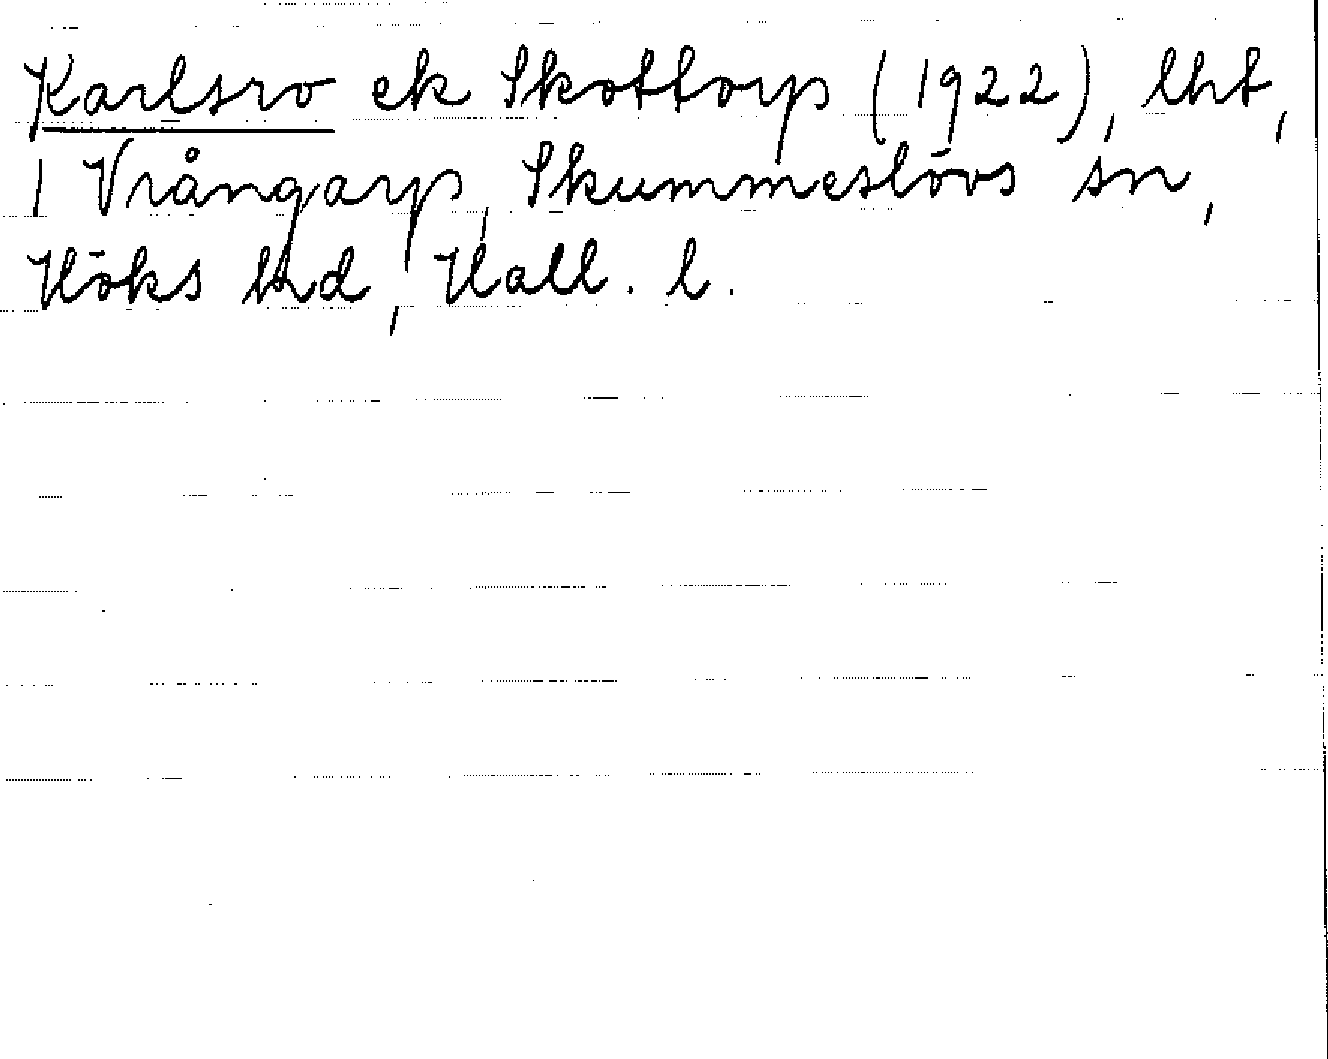 Karlsro ek Skottorp (1922), lht,
1 Vrångarp, Skummeslövs sn,
Höks hd, Hall. l.